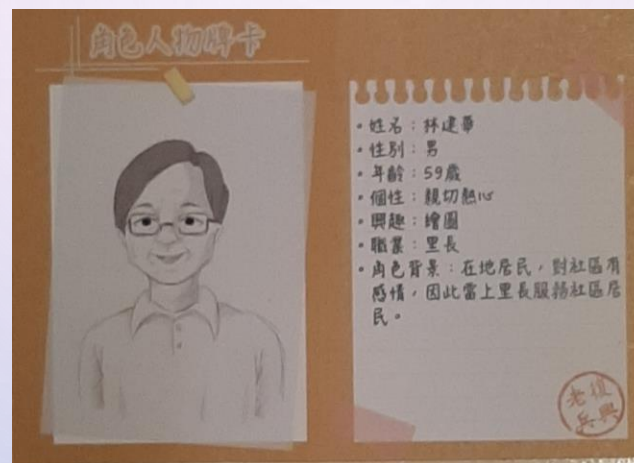 角色人物牌卡
・姓名：林建華
・性別：男
・年齡：59歲
・個性：親切熱心
・興趣：繪圖
・職業：里長
・角色背景：在地居民，對社區有
感情，因此當上里長服務社區居
民。
老復
兵興